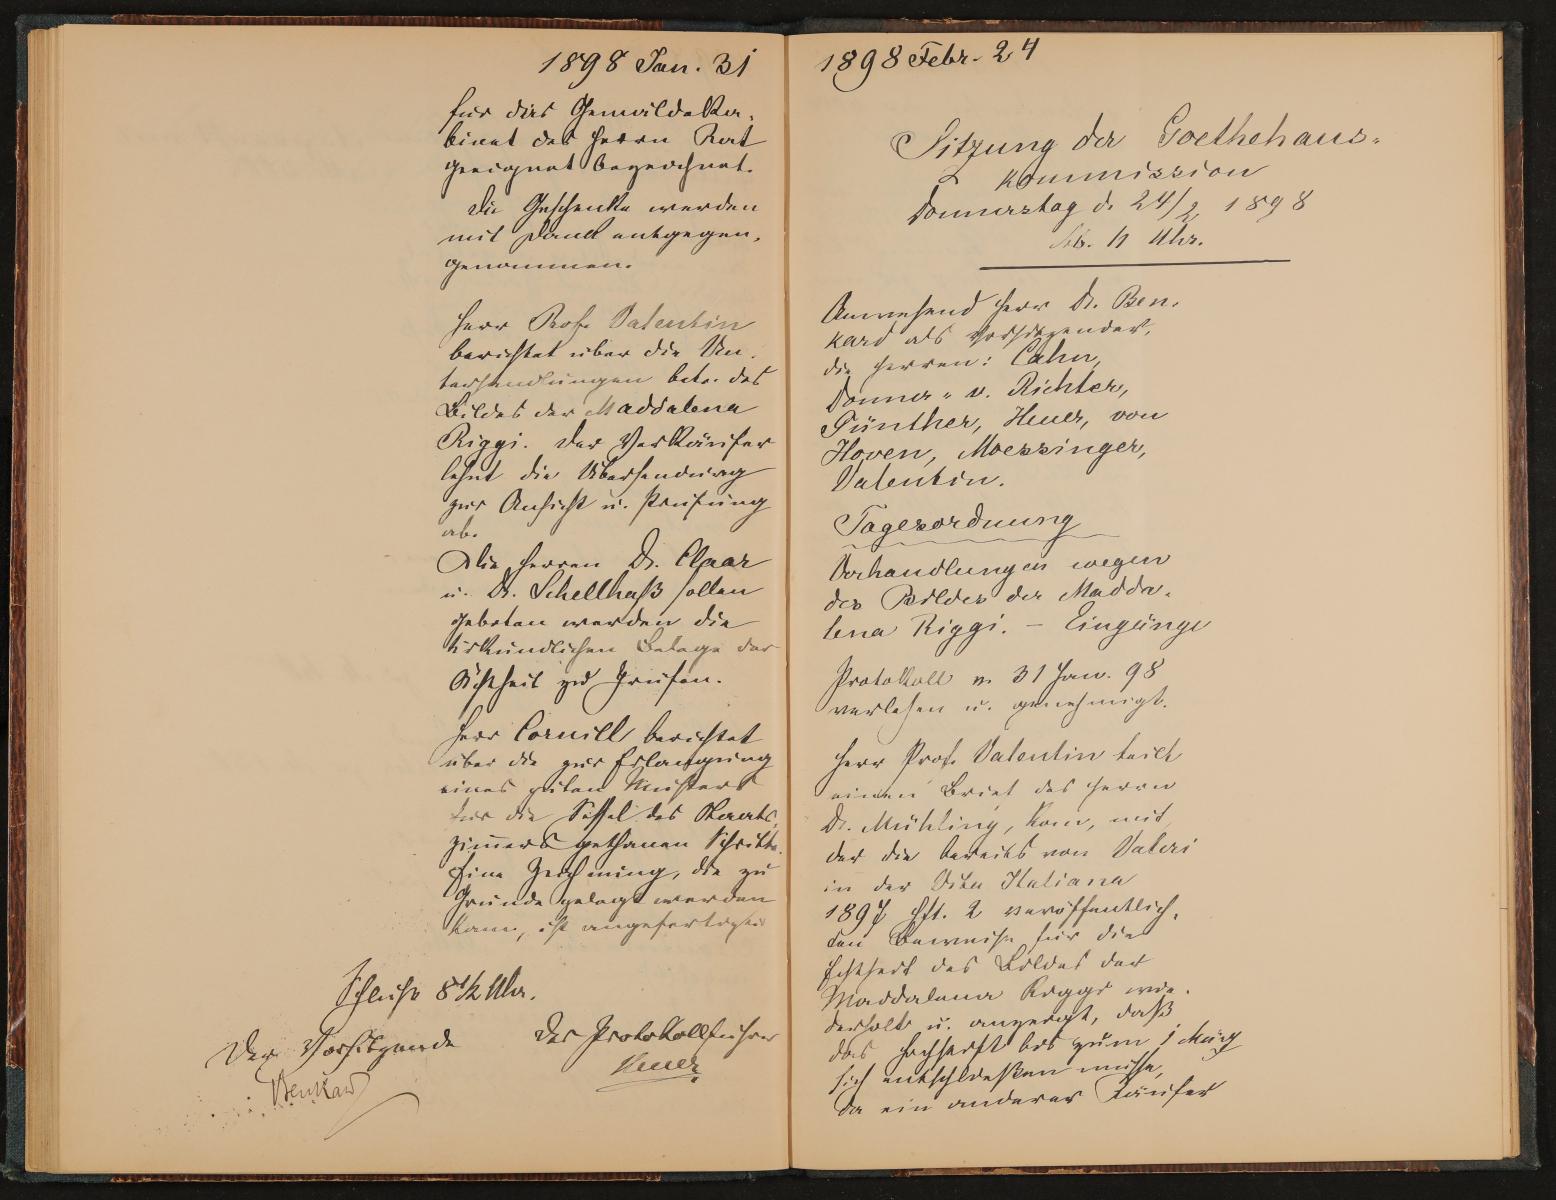 1898 Jan. 31
für das Gemäldeka-
binet des Herrn Rat
geeignet bezeichnet.
Die Geschenke werden
mit Dank entgegen-
genommen.
Herr Prof. Valentin
berichtet über die Un-
terhandlungen betr. des
Bildes der Maddalena
Riggi. Der Verkäufer
lehnt die Übersendung
zur Ansicht u. Prüfung
ab.
Die Herren Dr. Claar
u. Dr. Schellhaß sollen
gebeten werden die
urkundlichen Belege der
Echtheit zu prüfen.
Herr Cornill berichtet
über die zur Erlangung
eines guten Musters
für die Sessel des Staats-
zimmers gethanen Schritte.
Eine Zeichnung, die zu
Grunde gelegt werden
kann, ist angefertigt.
Schluß 8 1/2 Uhr.
Der Vorsitzende
Benkard
Der Protokollführer
Heuer
1898 Febr. 24
Sitzung der Goethehaus-
kommission
Donnerstag d. 24/2 1898
Uhr.
Anwesend Herr Dr. Ben-
kard als Vorsitzender,
die Herren: Cahn,
Donner- v. Richter,
Günther, Heuer, von
Hoven, Moessinger,
Valentin.
Tagesordnung
Verhandlungen wegen
des Bildes der Madda-
lena Riggi. – Eingänge
Protokoll v. 31 Jan. 98
verlesen u. genehmigt.
Herr Prof. Valentin teilt
einen Brief des Herrn
Dr. Mühling, Rom, mit
der die bereits von Valeri
in der Vita Italiana
1897 Hft. 2 veröffentlich-
ten Beweise für die
Echtheit des Bildes der
Maddalena Riggi wie-
derholt u. anzeigt, daß
das Hochstift bis zum 1 März
sich entschließen müsse,
da ein anderer Käufer